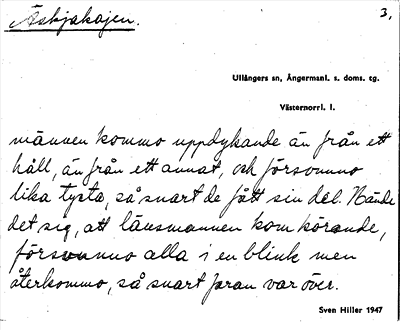 Äskjakajen.
3.
Ullångers sn, Ångermanl. s. doms. tg.
Västernorrl. l.
männen kommo uppdykande än från ett
håll, än från ett annat, och försvunno
lika tysta, så snart de fått sin del. Hände
det sig, att länsmannen kom körande,
försvunno alla i en blink men
återkommo, så snart faran var över.
Sven Hiller 1947